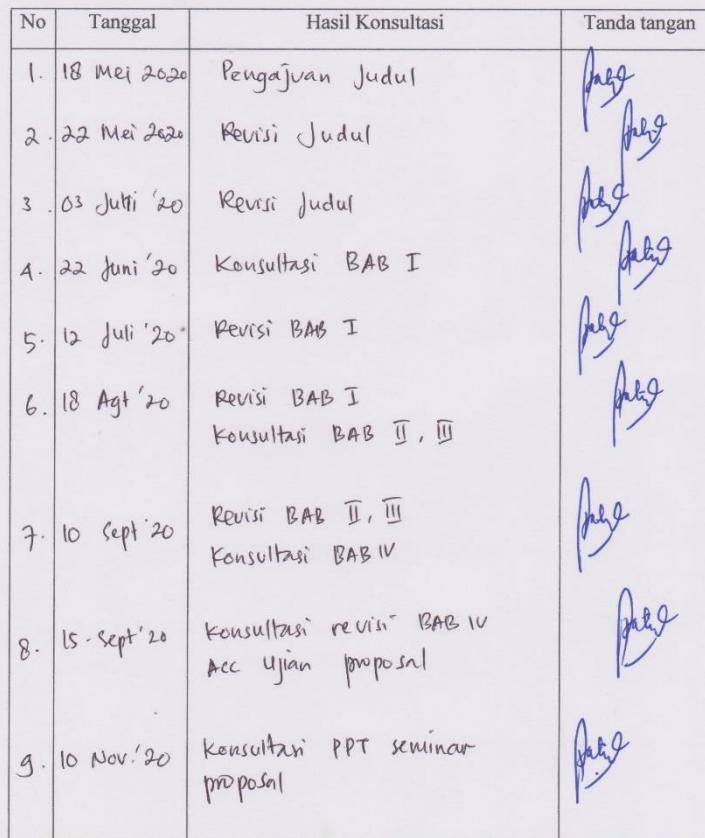 No Tanggal Hasil Konsultasi Tanda tangan
1. 18 Mei 2020 Pengajuan Judul
2. 22 Mei 2020 Revisi Judul
3. 03 Juni '20 Revisi Judul
4. 22 Juni '20 Konsultasi BAB I
5. 12 Juli '20 Revisi BAB I
6. 18 Agt '20 Revisi BAB I
Konsultasi BAB II, III
7. 10 Sept '20 Revisi BAB II, III
Konsultasi BAB IV
8. 15 - Sept '20 Konsultasi revisi BAB IV
Acc Ujian proposal
9. 10 Nov. '20 Konsultasi PPT seminar
proposal